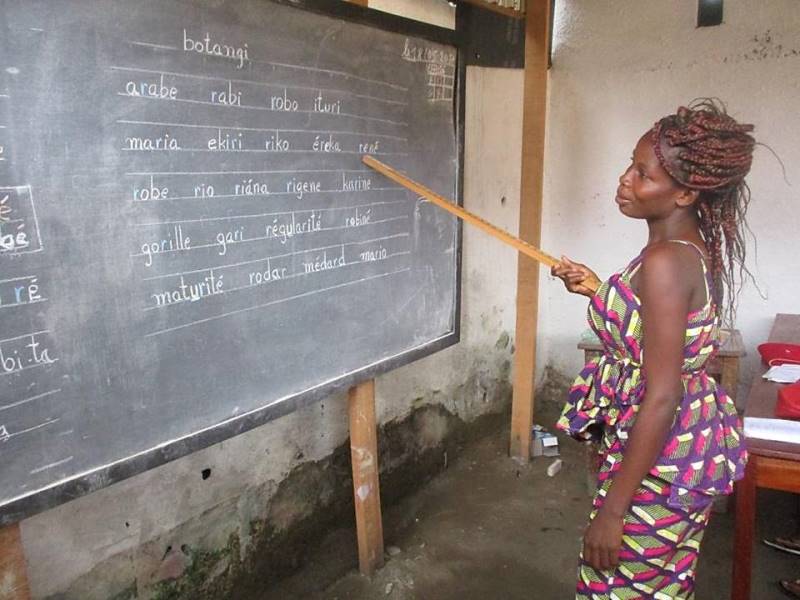 botangi
arabe rabi robo ituri
maria ekiri riko éreka rené
robe rio riána rigene karine
gorille gari régularité robiné
maturité rodar médard mario
é
bé
ré
bi.ta